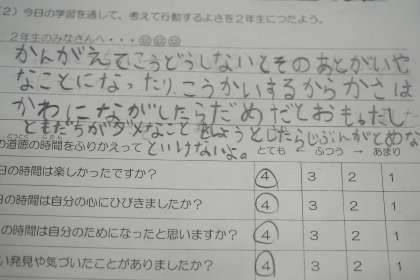 (2) 今日の学習を通して、考えて行動するよさを2年生につたよう。
2年生のみなさんへ・・・
かんがえてこうどうしないとそのあとがいや
なことになったり、こうかいするからかさは
かわになながしたらだめだとおもったし
ともだちがダメなことをしようとしたらじぶんがとめな
の道徳の時間をふりかえって といけないよ。 とても ← ふつう → あまり
日の時間は楽しかったですか? 4 3 2 1
日の時間は自分の心にひびきましたか? 4 3 2 1
の時間は自分のためになったと思いますか? 4 3 2 1
い発見や気づいたことがありましたか? 4 3 2 1